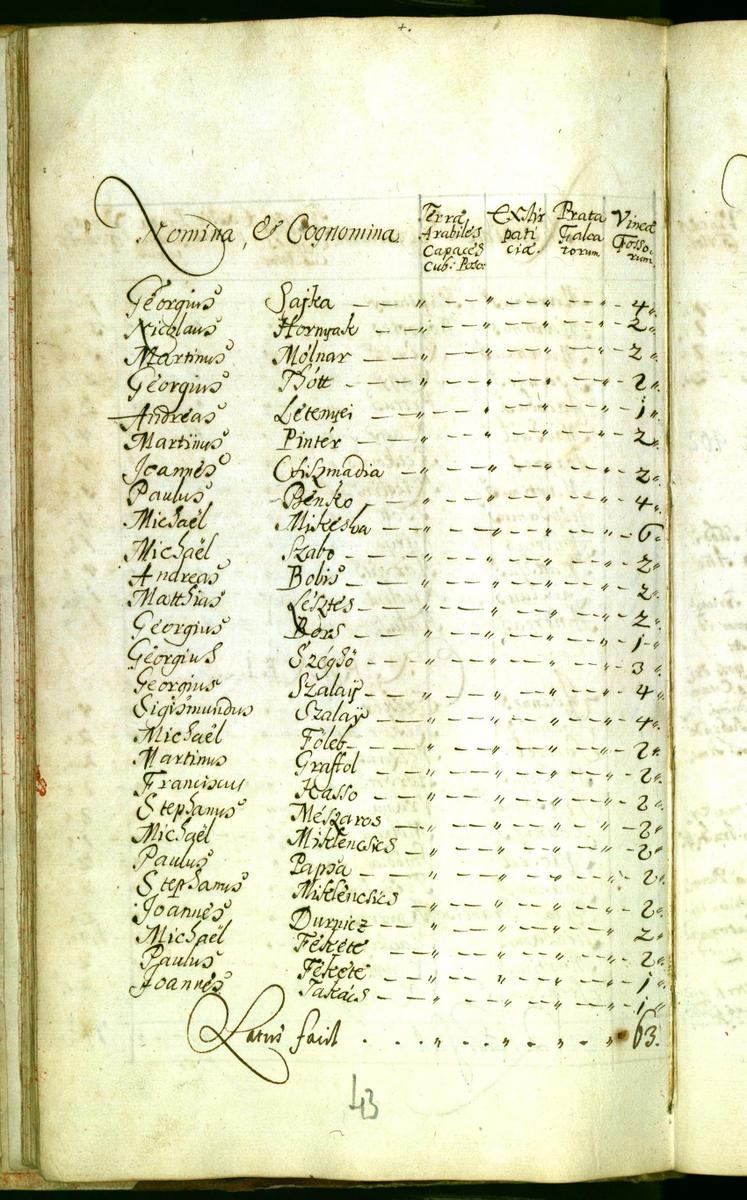 Nomina, & Cognomina. Terræ Arabiles Capaces Cub: Poson: Exstirpatitiæ. Prata Falcatorum Vineæ Fossorum.
Georgius Sajka — „ — „ — „ — 4 „
Nicolaus Hornyak — „ — „ — „ — 2 „
Martinus Mólnar — „ — „ — „ — 2 „
Georgius Thótt — „ — „ — „ — 2 „
Andreas Letenyei — „ — „ — „ — 1 „
Martinus Pintér — „ — „ — „ — 2 „
Joannes Csiszmadia — „ — „ — „ — 2 „
Paulus Benko — „ — „ — „ — 4 „
Michaël Mikeska — „ — „ — „ — 6 „
Michaël Szabo — „ — „ — „ — 2 „
Andreas Bobis — „ — „ — „ — 2 „
Matthias Lésztes — „ — „ — „ — 2 „
Georgius Bors — „ — „ — „ — 1 „
Georgius Széghő — „ — „ — „ — 3 „
Georgius Szalaÿ — „ — „ — „ — 4 „
Sigismundus Szalaÿ — „ — „ — „ — 4 „
Michaël Fóleb — „ — „ — „ — 2 „
Martinus Graffol — „ — „ — „ — 2 „
Franciscus Hasso — „ — „ — „ — 2 „
Stephanus Mészaros — „ — „ — „ — 2 „
Michaël Miklencsics — „ — „ — „ — 2 „
Paulus Pappa — „ — „ — „ — 2 „
Stephanus Miklencsics — „ — „ — „ — 2 „
Joannes Durnicz — „ — „ — „ — 2 „
Michaël Fekete — „ — „ — „ — 2 „
Paulus Fekete — „ — „ — „ — 1 „
Joannes Takács — „ — „ — „ — 1 „
Latus facit . . . „ . . „ . „ . „ 63.
43